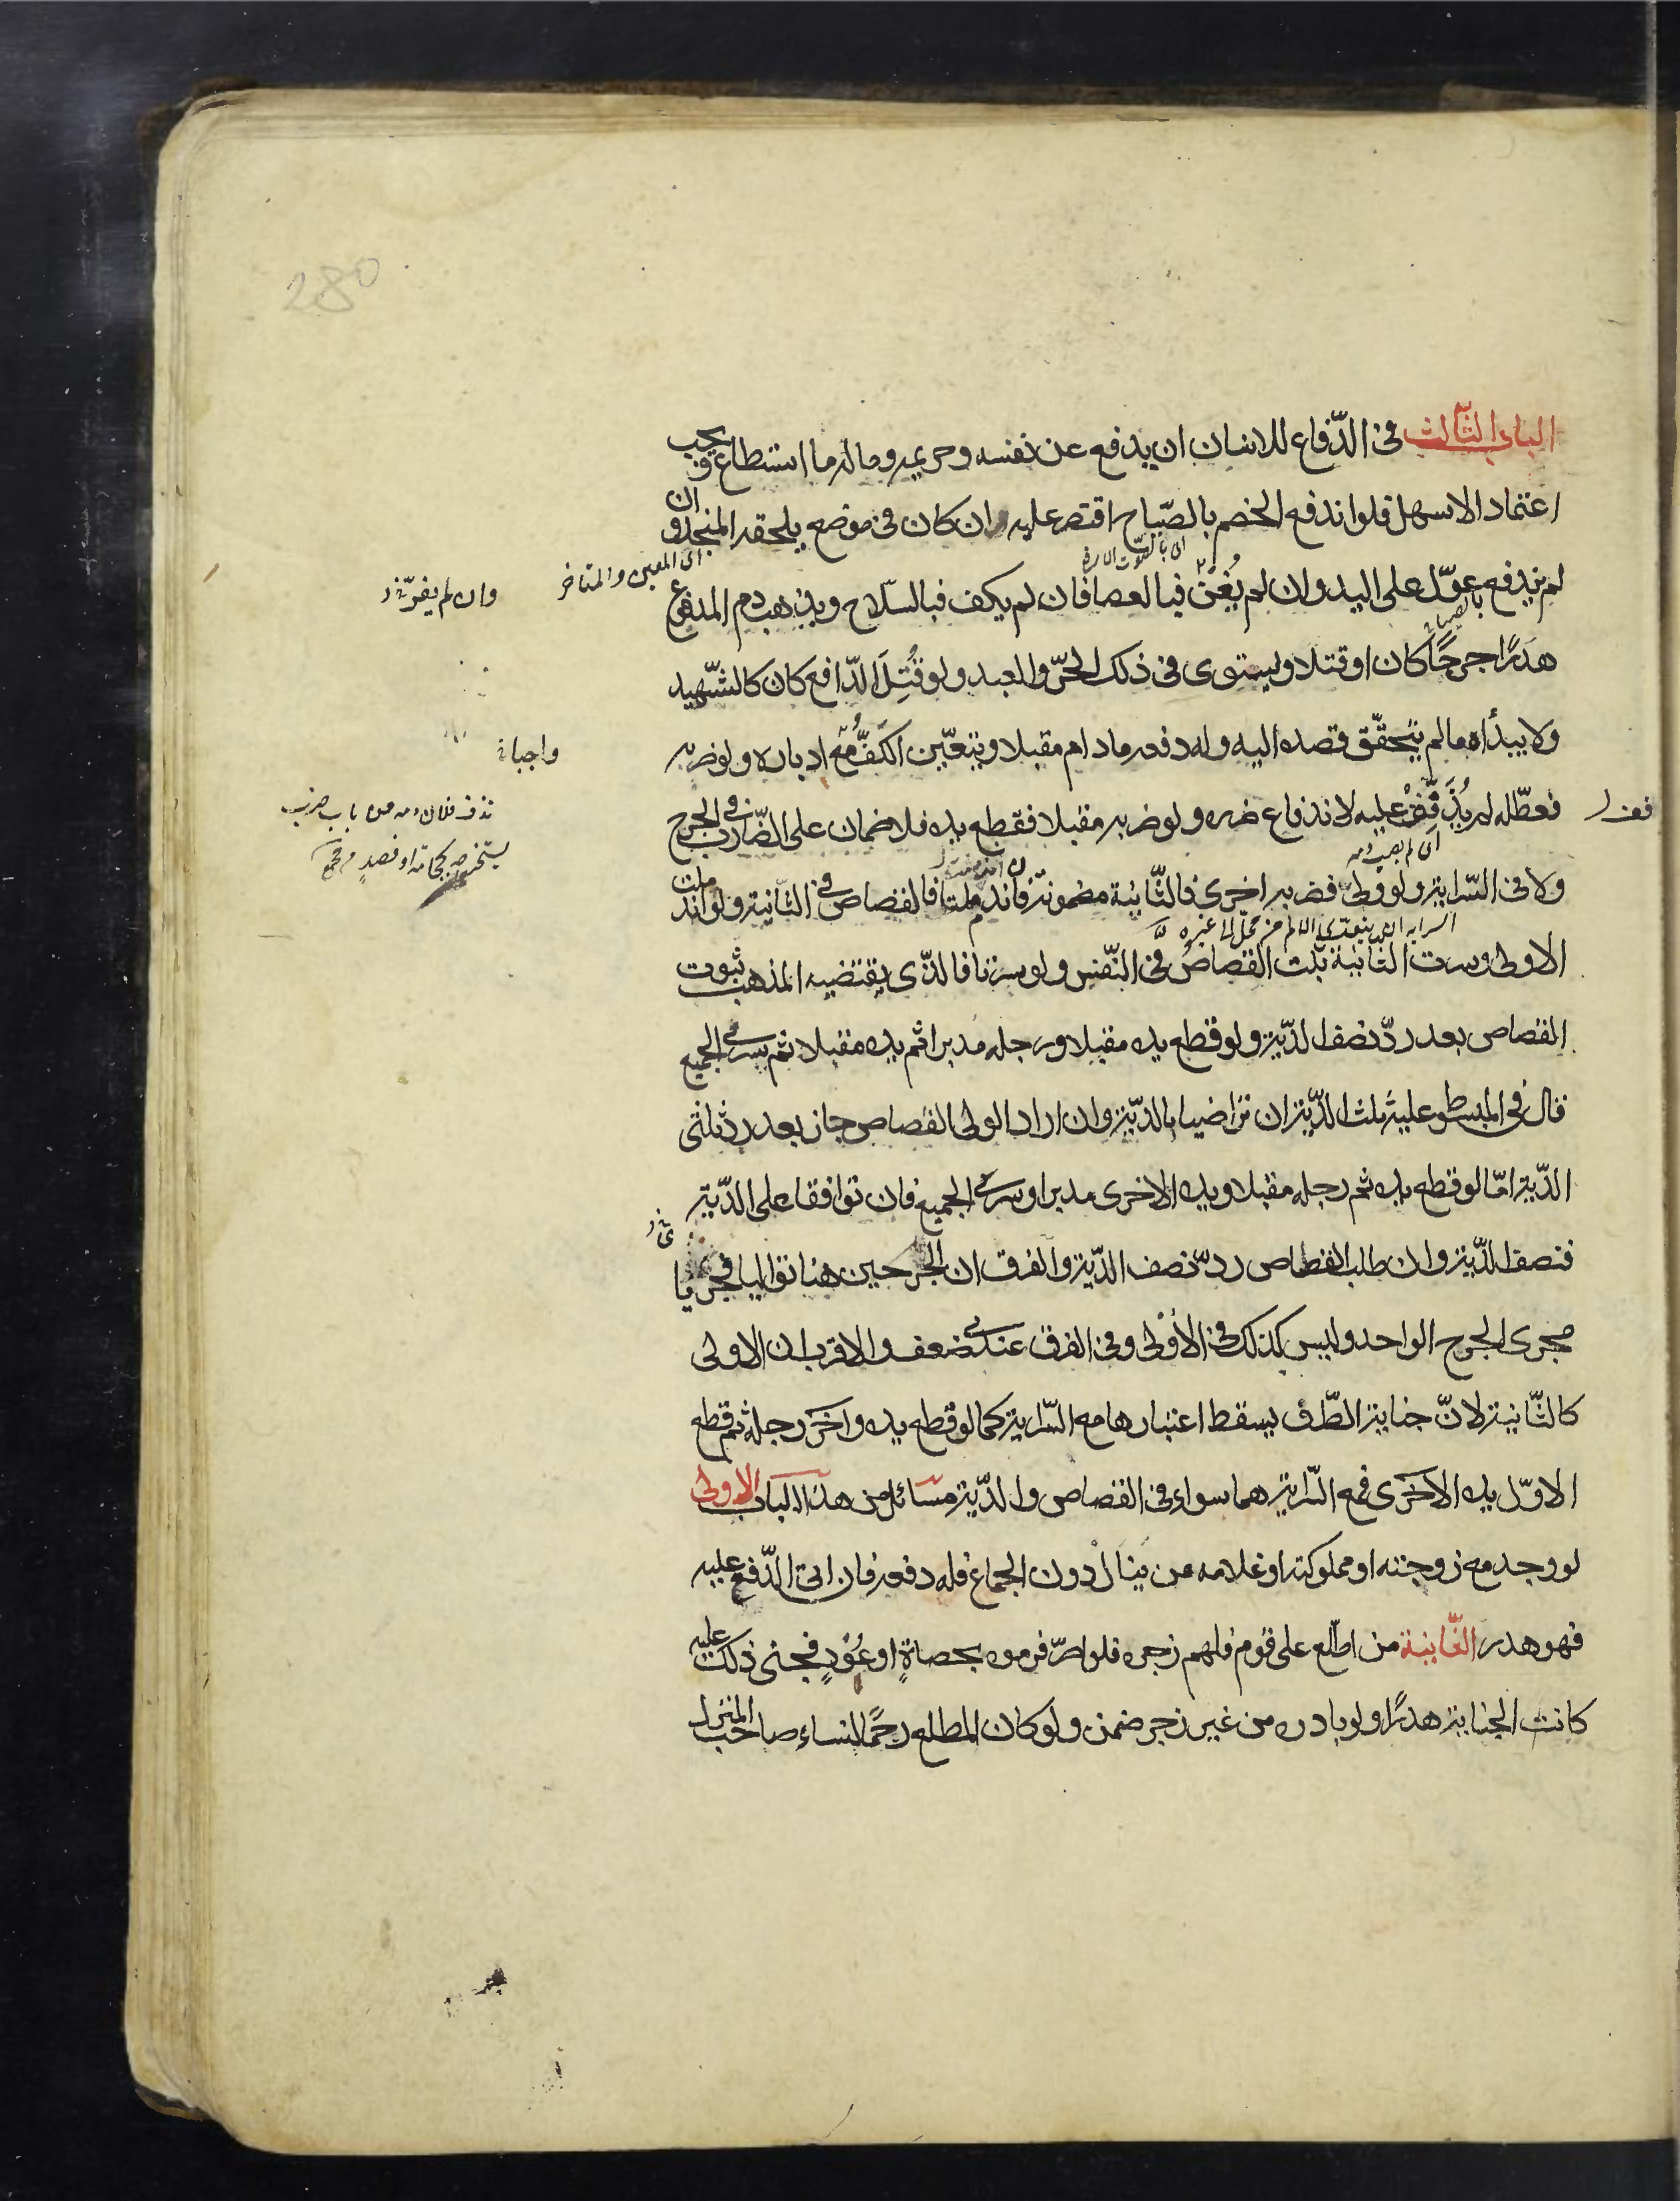 280
الباب الثالث فى الدّفاع للانسان ان يدفع عن نفسه وحريمه وماله ما استطاع ويجب
اعتماد الاسهل فلو اندفع الخصم بالصّياح اقتصر عليه ان كان فى موضع يلحقه المنجد وان
لم يندفع عوّل على اليد وان لم يُغنْ فبالعصا فان لم يكف فبالسّلاح ويذهب دم المدفوع
هدَرًا جرحًا كان او قتلا ويستوى فى ذلك الحرّ والعبد ولو قُتِلَ الدّافع كان كالشّهيد
ولا يبدأه ما لم يتحقّق قصده اليه وله دفعه مادام مقبلا ويتعيّن الكفّ مع ادباره ولو ضربه
فعطّله لم يُذَفِّفْ عليه لاندفاع ضرره ولو ضربه مقبلا فقطع يده فلا ضمان على الضّارب فى الجرح
ولا فى السّراية ولو ولّى فضربه اخرى فالثّانية مضمونة فان اندملتا فالقصاص فى الثّانية ولو اندملت
الاولى وسرت الثّانية ثبت القصاص فى النّفس ولو سرتا فالذّى يقتضيه المذهب ثبوت
القصاص بعد ردّ نصف الدّية ولو قطع يده مقبلا ورجله مدبرا ثم يده مقبلا ثم سرى الجميع
قال فى المبسوط عليه ثلث الدّية ان تراضيا بالدّية وان اراد الولى القصاص جاز بعد رد ثلثى
الدّية امّا لو قطع يده ثم رجله مقبلا ويده الاخرى مدبرا وسرى الجميع فان توافقا على الدّية
فنصف الدّية وان طلب القصاص ردّ نصف الدّية والفرق ان الجرحين هنا تواليا فجريا
مجرى الجرح الواحد وليس كذلك فى الاولى وفى الفرق عندى ضعف والاقرب ان الاولى
كالثّانية لانّ جناية الطّرف يسقط اعتبارها مع السّراية كما لو قطع يده واخَر رجله ثم قطع
الاوّل يده الاخرى فمع السّراية هما سواء فى القصاص والدّية مسائل من هذا الباب الاولى
لو وجد مع زوجته او مملوكته او غلامه من ينال دون الجماع فله دفعه فان اتى الدّفع عليه
فهو هدر الثّانية من اطّلع على قوم فلهم زجره فلو اصرّ فرموه بحصاةٍ او عُوْدٍ فجنى ذلك عليه
كانت الجناية هدرًا ولو بادره من غير زجر ضمن ولو كان المطلع رحمًا لنساء صاحب المنزل
اى المعين والمتاخر
واجبا
اى لم يصب دمه